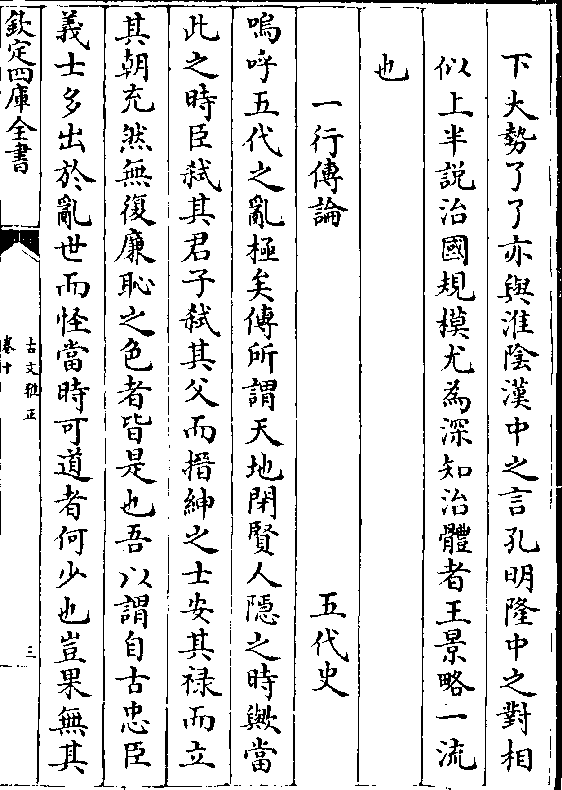 下大勢了了亦與淮陰漢中之言孔明隆中之對相
似上半説治國規模尤為深知治體者王景略一流
也
一行傳論 五代史
嗚呼五代之亂極矣傳所謂天地閉賢人隱之時歟當
此之時臣弑其君子弑其父而搢紳之士安其禄而立
其朝充然無復廉恥之色者皆是也吾以謂自古忠臣
義士多出於亂世而怪當時可道者何少也豈果無其
欽定四庫全書
古文雅正
卷十
三